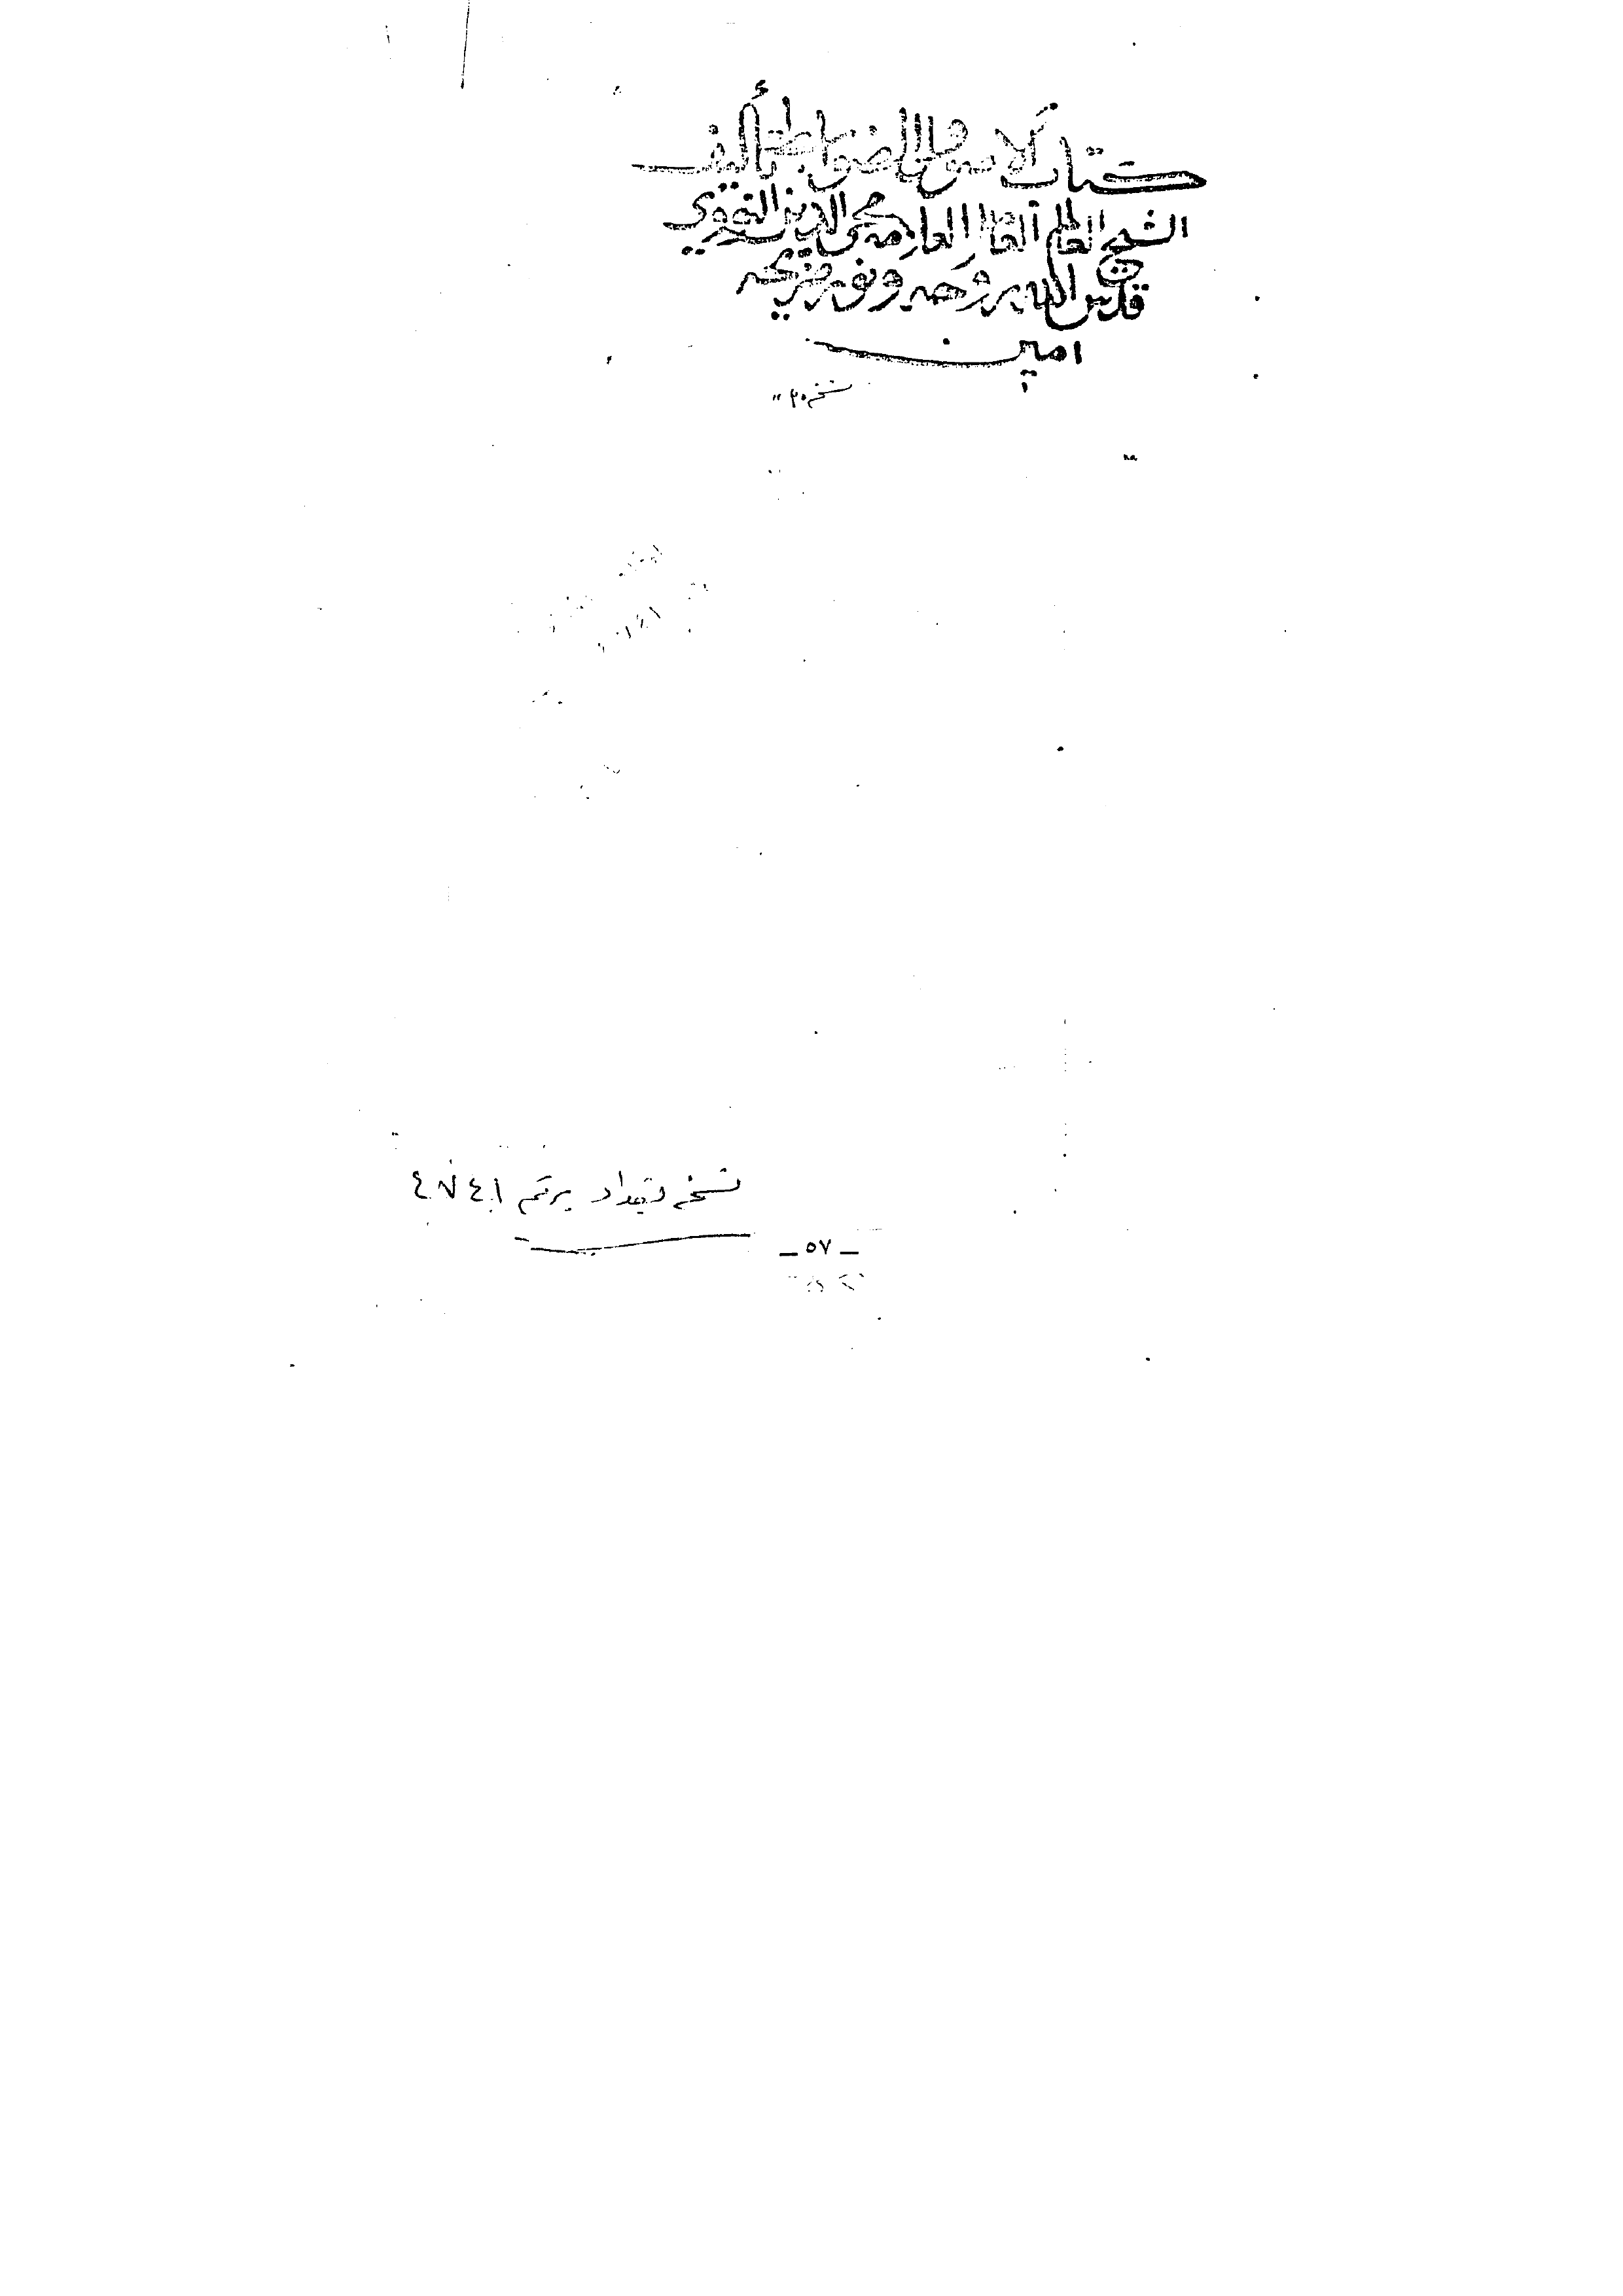 كتاب الاصول والضوابط تأليف
الشيخ العالم العلامه محيي الدين النووي
قدس الله روحه ونور ضريحه
امين
نسخه
نسخه بغداد برقم ٤٧٤١
_ ٥٧ _